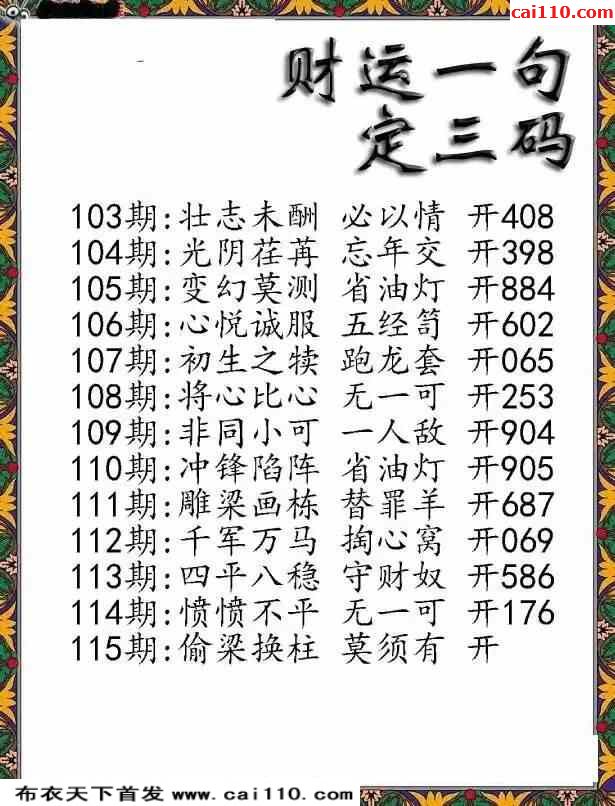 cai110.com
财运一句
定三码
103期:壮志未酬 必以情 开408
104期:光阴荏苒 忘年交 开398
105期:变幻莫测 省油灯 开884
106期:心悦诚服 五经笥 开602
107期:初生之犊 跑龙套 开065
108期:将心比心 无一可 开253
109期:非同小可 一人敌 开904
110期:冲锋陷阵 省油灯 开905
111期:雕梁画栋 替罪羊 开687
112期:千军万马 掏心窝 开069
113期:四平八稳 守财奴 开586
114期:愤愤不平 无一可 开176
115期:偷梁换柱 莫须有 开
布衣天下首发 www.cai110.com